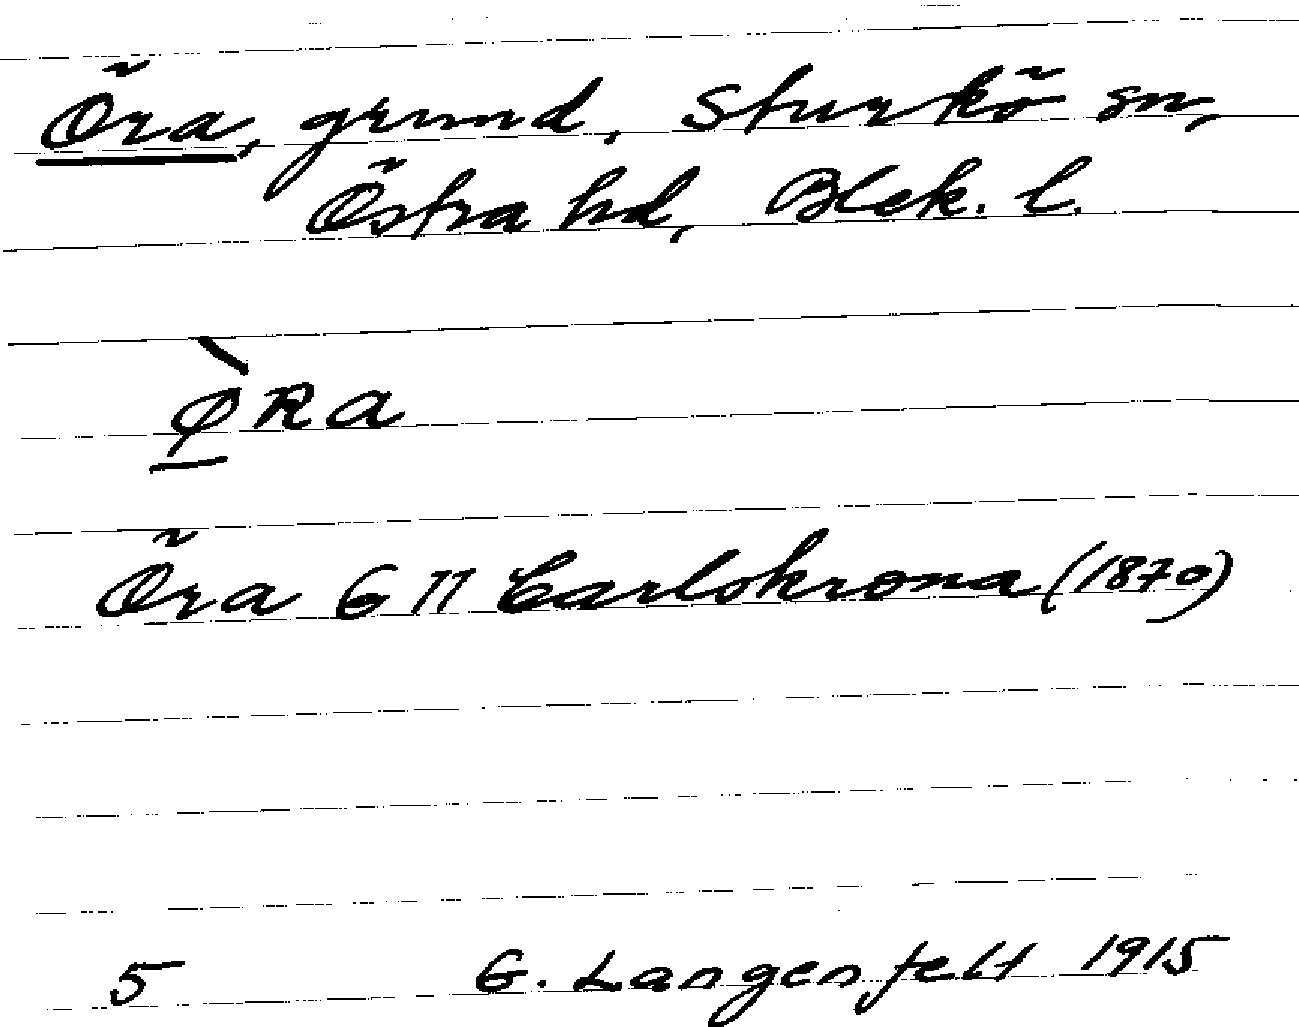 Öra, grund, Sturkö sn,
Östra hd, Blek. l.
Öra G II Carlskrona (1870)
5 G. Langenfelt 1915